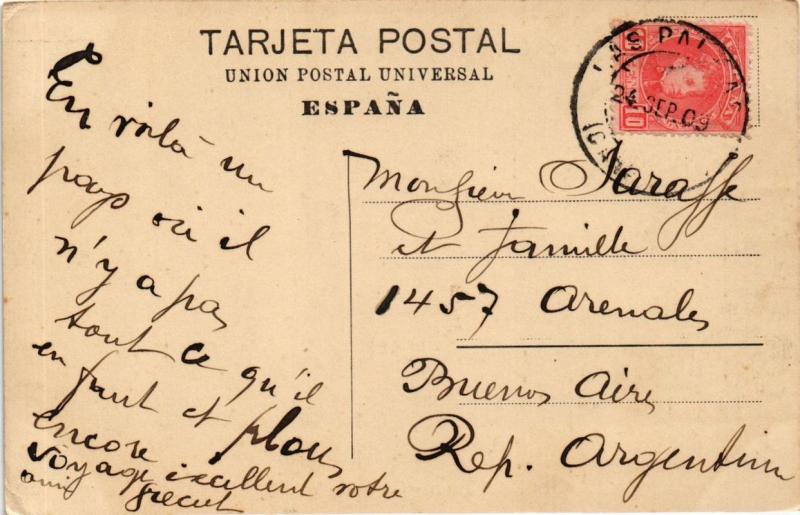 TARJETA POSTAL
UNION POSTAL UNIVERSAL
ESPAÑA
LAS PALMAS
24 SEP. 09
10
En voilà un
pays où il
n'y a pas
tout ce qu'il
en faut et plus
encore
voyage excellent votre
ami
Monsieur
et famille
1457 Arenales
Buenos Aires
Rep. Argentina